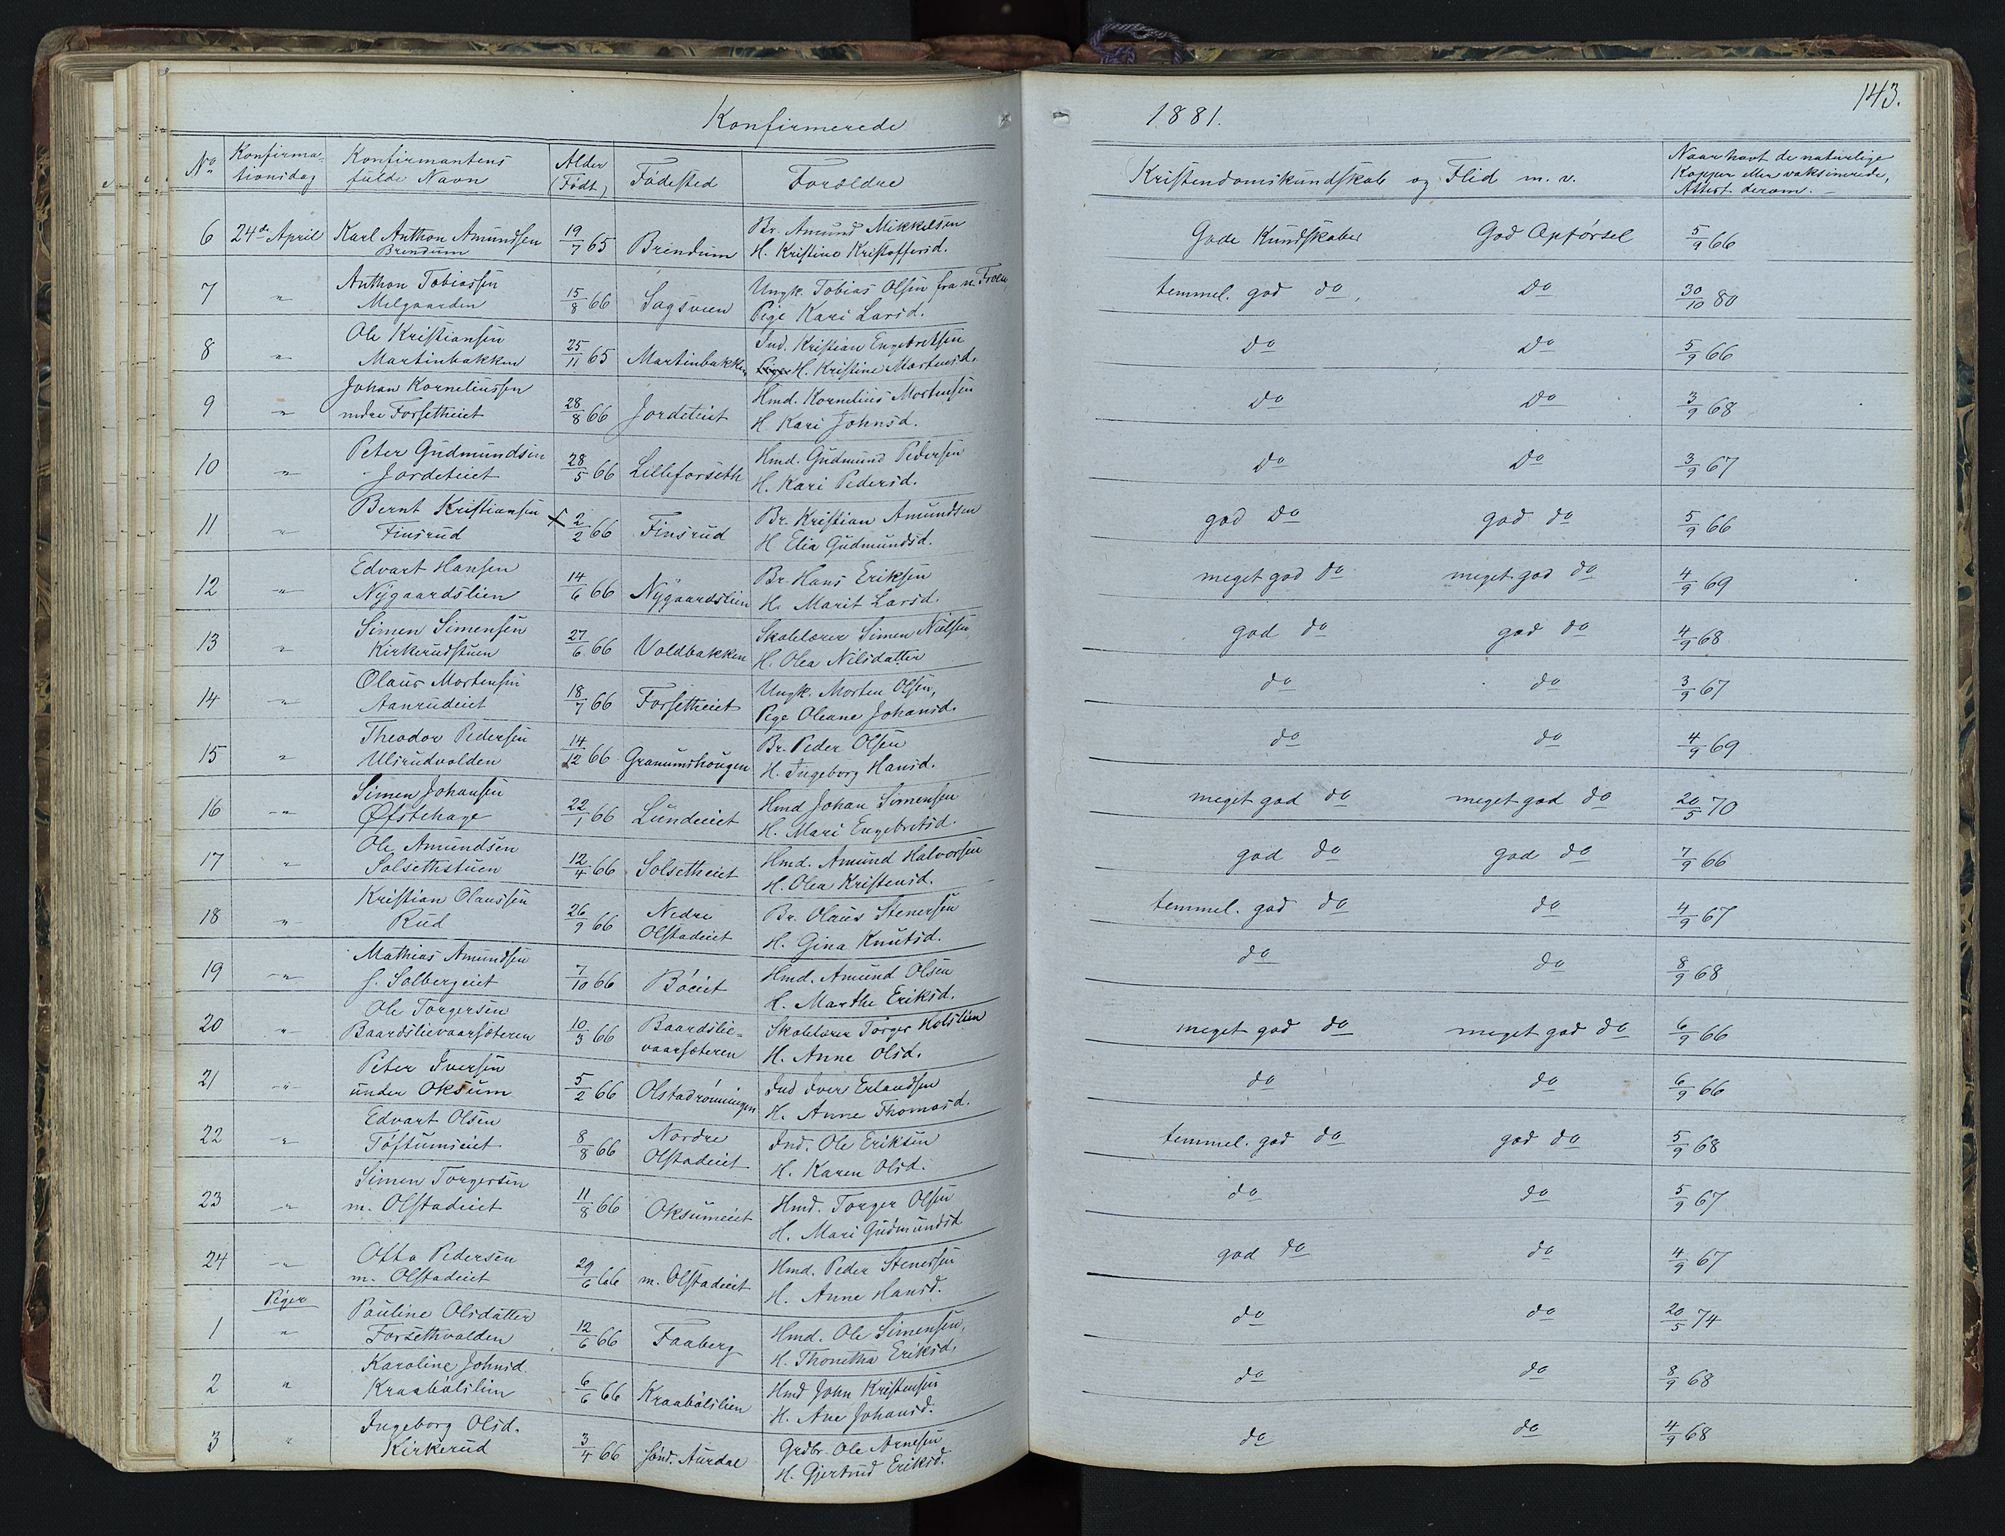 Konfirmerede 1881. 143.
No Konfirma-tionsdag Konfirmantens fulde Navn Alder (Født) Fødested Forældre Kristendomskundskab og Flid m. v. Naar havt de naturlige Kopper eller vaksinerede, Attest derom.
6 24de April Karl Anthon Amundsen Brendum 19/7 65 Brendum Br. Amund Mikkelsen H. Kristine Kristoffersd. Gode Kundskaber God Opførsel 5/9 66
7 " Anthon Tobiassen Melgaarden 15/8 66 Sagsveen Ungk. Tobias Olsen fra n. Pige Kari Larsd. temmel. god do, Do 30/10 80
8 " Ole Kristiansen Martinbakken 25/11 65 Martinbakken Ind. Kristian Engebretsen H. Kristine Mortensd. Do Do 5/9 66
9 " Johan Korneliussen ndre Forsetheiet 28/8 66 Jordeteiet Hmd. Kornelius Mortensen H. Kari Johnsd. Do Do 3/9 68
10 " Peter Gudmundsen Jordeteiet 28/5 66 Lilleforseth Hmd. Gudmund Pedersen H. Kari Pedersd. Do Do 3/9 67
11 " Bernt Kristiansen Finsrud 2/2 66 Finsrud Br. Kristian Amundsen H. Elia Gudmundsd. god Do god do 5/9 66
12 " Edvart Hansen Nygaardslien 14/6 66 Nygaardslien Br. Hans Eriksen H. Marit Larsd. meget god do meget god do 4/9 69
13 " Simen Simensen Kirkerudstuen 27/6 66 Voldbakken Skolelærer Simen Nielsen H. Olea Nilsdatter god do god do 4/9 68
14 " Olaus Mortensen Aanrudeiet 18/7 66 Forsetheiet Ungk. Morten Olsen, Pige Oleane Johansd. do do 3/9 67
15 " Theodor Pedersen Ulsrudvolden 14/12 66 Granumshougen Br. Peder Olsen H. Ingeborg Hansd. do do 4/9 69
16 " Simen Johansen Øfstehage 22/1 66 Lundeiet Hmd Johan Simensen H. Mari Engebretsd. meget god do meget god do 20/5 70
17 " Ole Amundsen Solsethstuen 12/4 66 Solsetheiet Hmd. Amund Halvorsen H. Olea Kristensd. god do god do 7/9 66
18 " Kristian Olaussen Rud 26/9 66 Nedre Olstadeiet Br. Olaus Stenersen H. Gina Knutsd. temmel. god do do 4/9 67
19 " Mathias Amundsen s. Solbergeiet 7/10 66 Bøeiet Hmd. Amund Olsen H. Marthe Eriksd. do do 8/9 68
20 " Ole Torgersen Baardslievaarsæteren 10/3 66 Baardslie-vaarsæteren Skolelærer Torger Holslien H. Anne Olsd. meget god do meget god do 6/9 66
21 " Peter Iversen under Oksum 5/2 66 Olstadrønningen Ind Iver Erlandsen H. Anne Thomasd. do do 6/9 66
22 " Edvart Olsen Toftumseiet 8/8 66 Nordre Olstadeiet Ind. Ole Eriksen H. Karen Olsd. temmel. god do god do 5/9 68
23 " Simen Torgersen m. Olstadeiet 11/8 66 Oksumeiet Hmd. Torger Olsen H. Mari Gudmundsd do do 5/9 67
24 " Otto Pedersen m. Olstadeiet 29/6 66 m. Olstadeiet Hmd. Peder Stenersen H. Anne Hansd. god do do 4/9 67
Piger
1 " Pauline Olsdatter Forsethvolden 12/6 66 Faaberg Hmd. Ole Simensen, H. Thonetha Eriksd. do do 20/5 74
2 " Karoline Johnsd. Kraabølslien 6/6 66 Kraabølslien Hmd John Kristensen H. Ane Johansd. do do 8/9 68
3 " Ingeborg Olsd. Kirkerud 3/4 66 Sønd. Aurdal Grdbr. Ole Arnesen H. Gjertrud Eriksd. do do 4/9 68